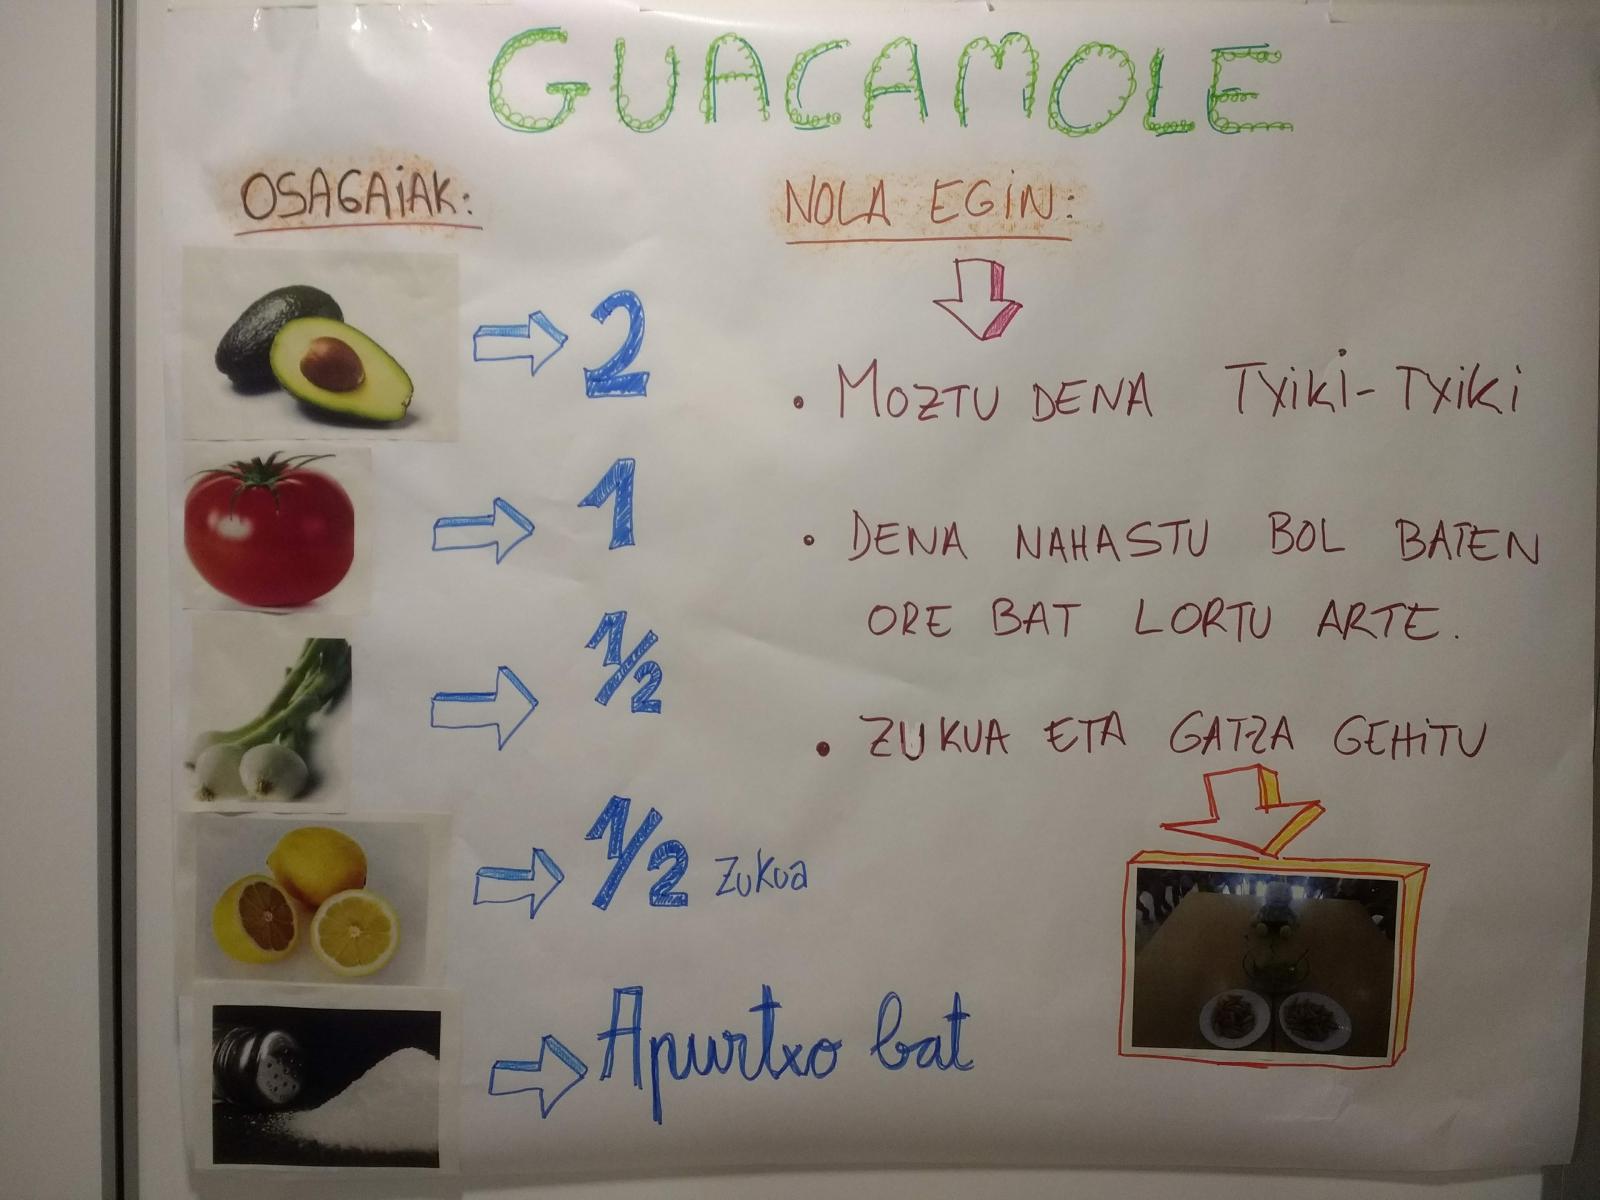 GUACAMOLE
OSAGAiAK:
2
1
1/2
1/2 Zukua
Apurtxo bat
NOLA EGiN:
• MOZTU DENA TXiKi-TXiKi
• DENA NAHASTU BOL BATEN
ORE BAT LORTU ARTE.
• ZUKUA ETA GATZA GEHiTU